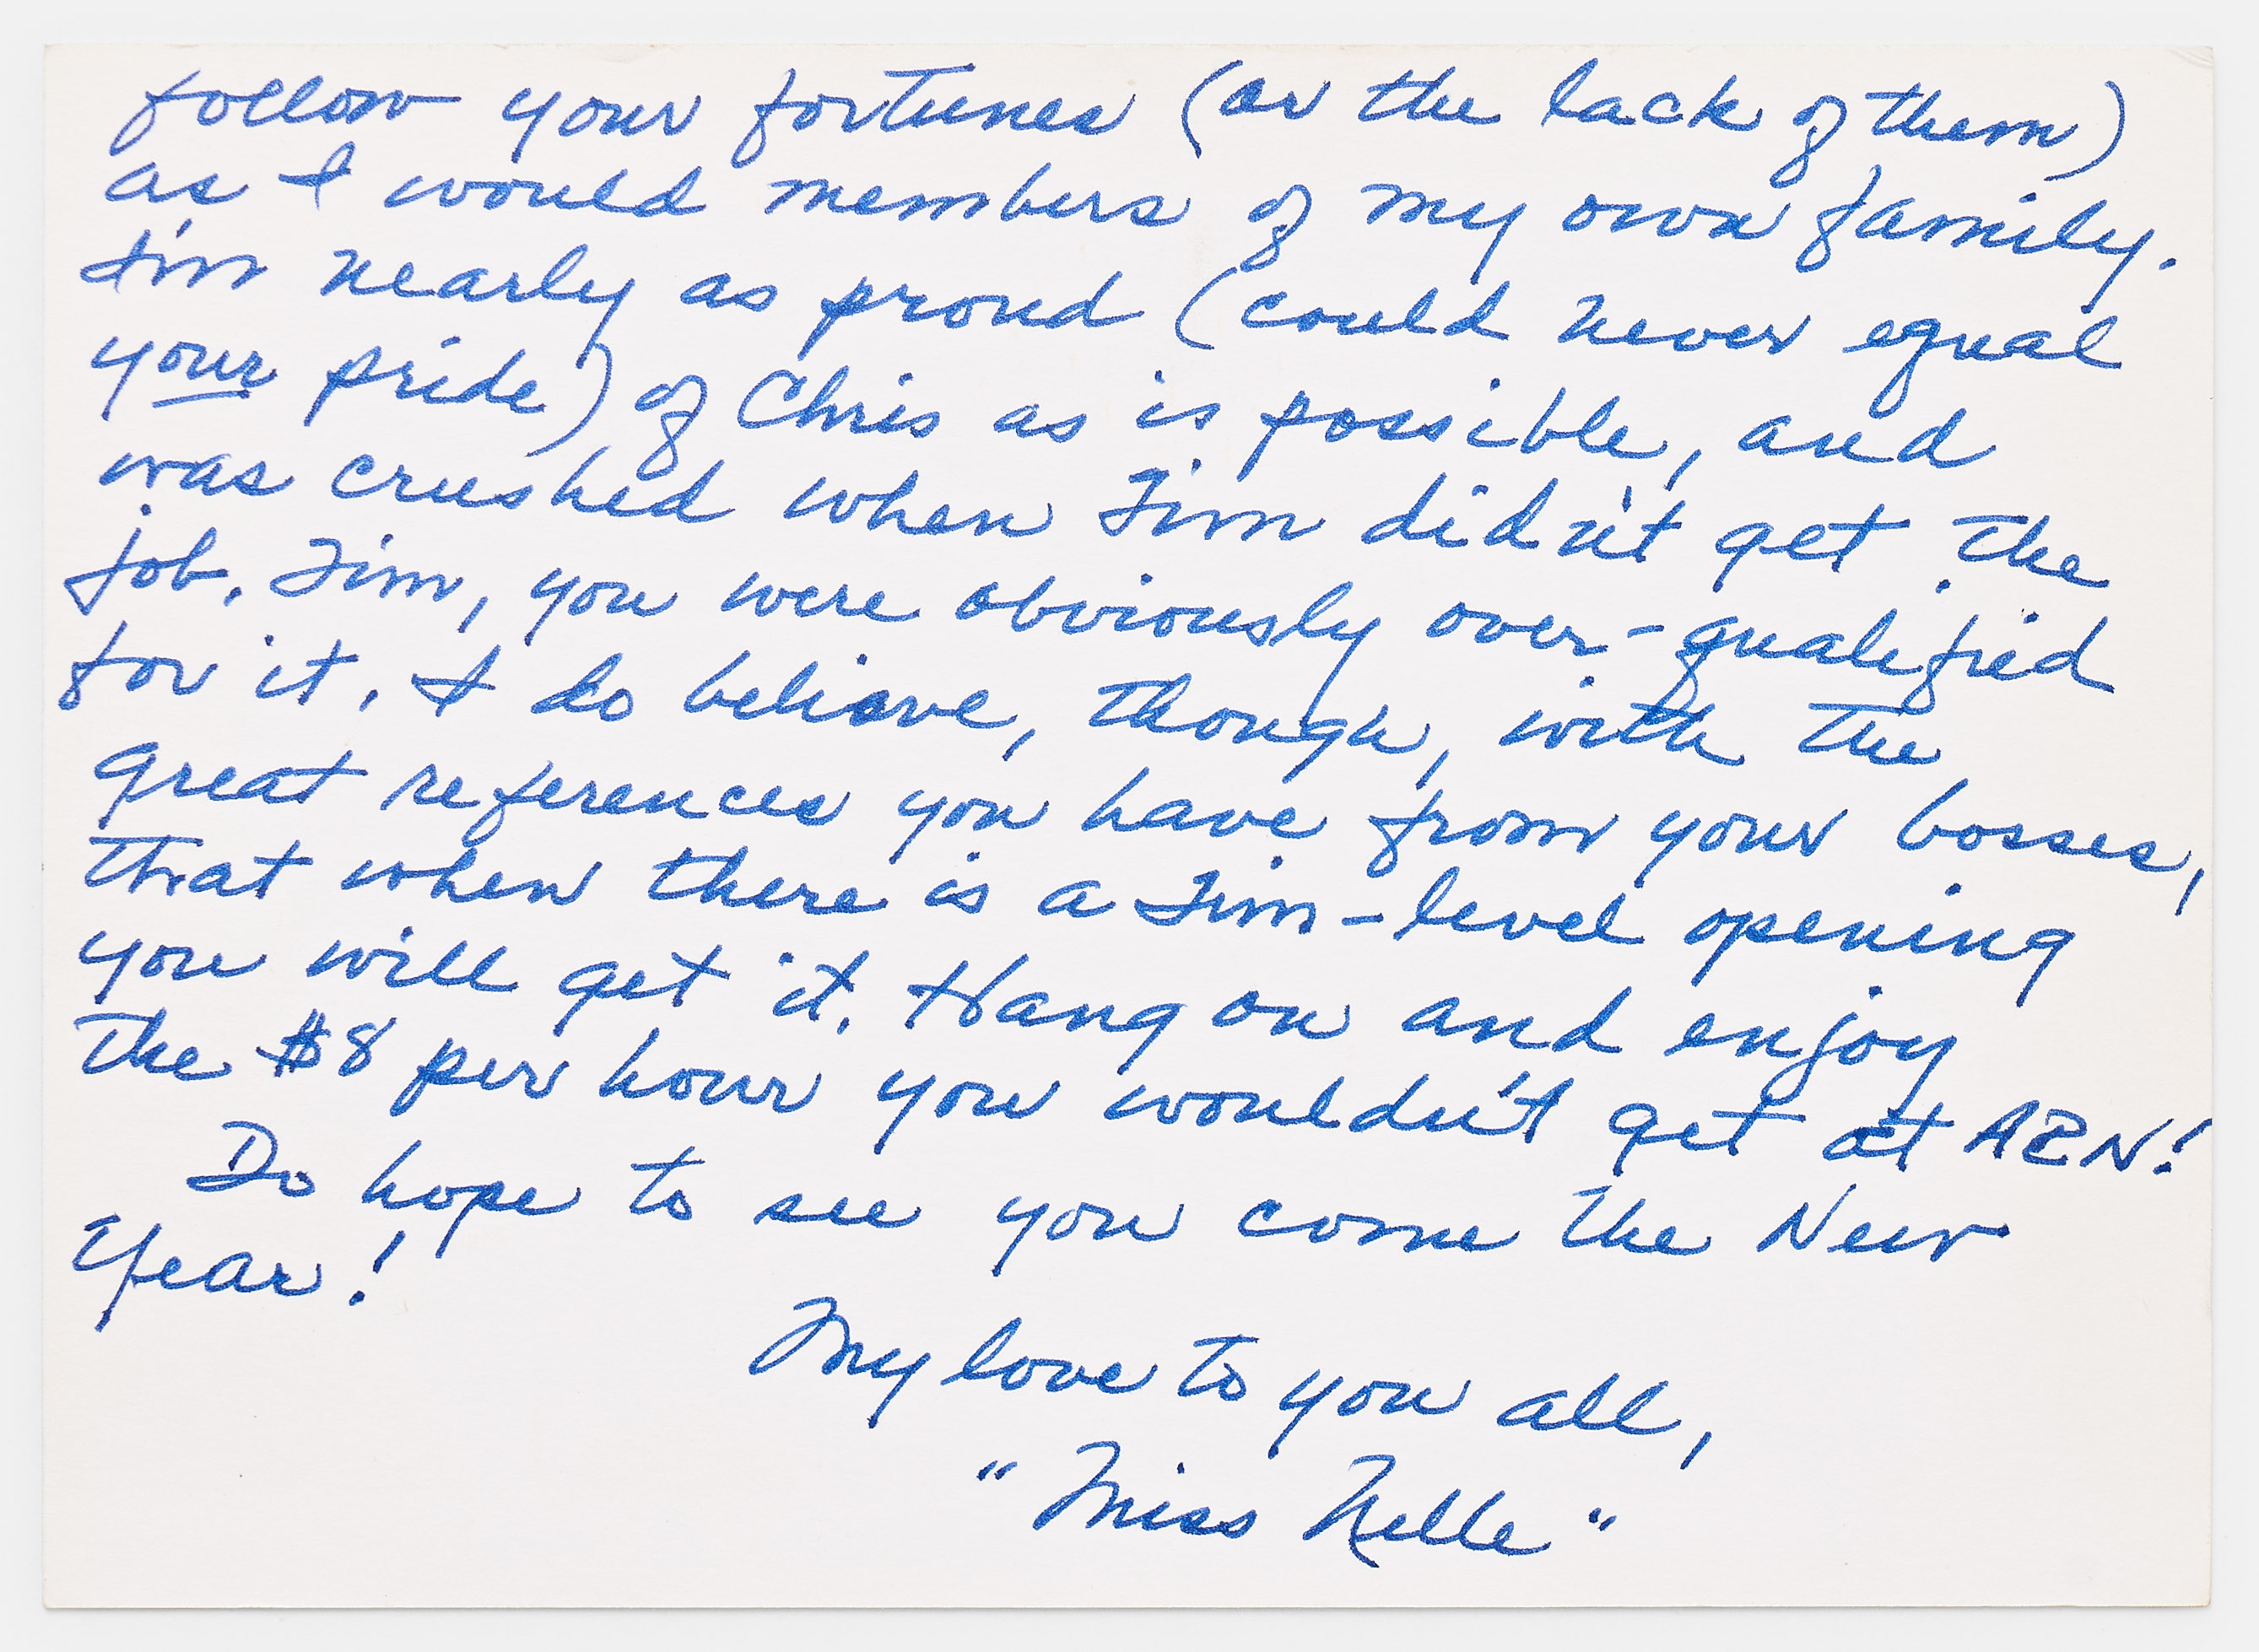 follow your fortunes (or the lack of them)
as I would members of my own family.
I'm nearly as proud (could never equal
your pride) of Chris as is possible, and
was crushed when Jim didn't get the
job. Jim, you were obviously over-qualified
for it. I do believe, though, with the
great references you have from your bosses,
that when there is a Jim-level opening
you will get it. Hang on and enjoy
the $8 per hour you wouldn't get at ARN!
Do hope to see you come the New
Year!
My love to you all,
"Miss Nelle"